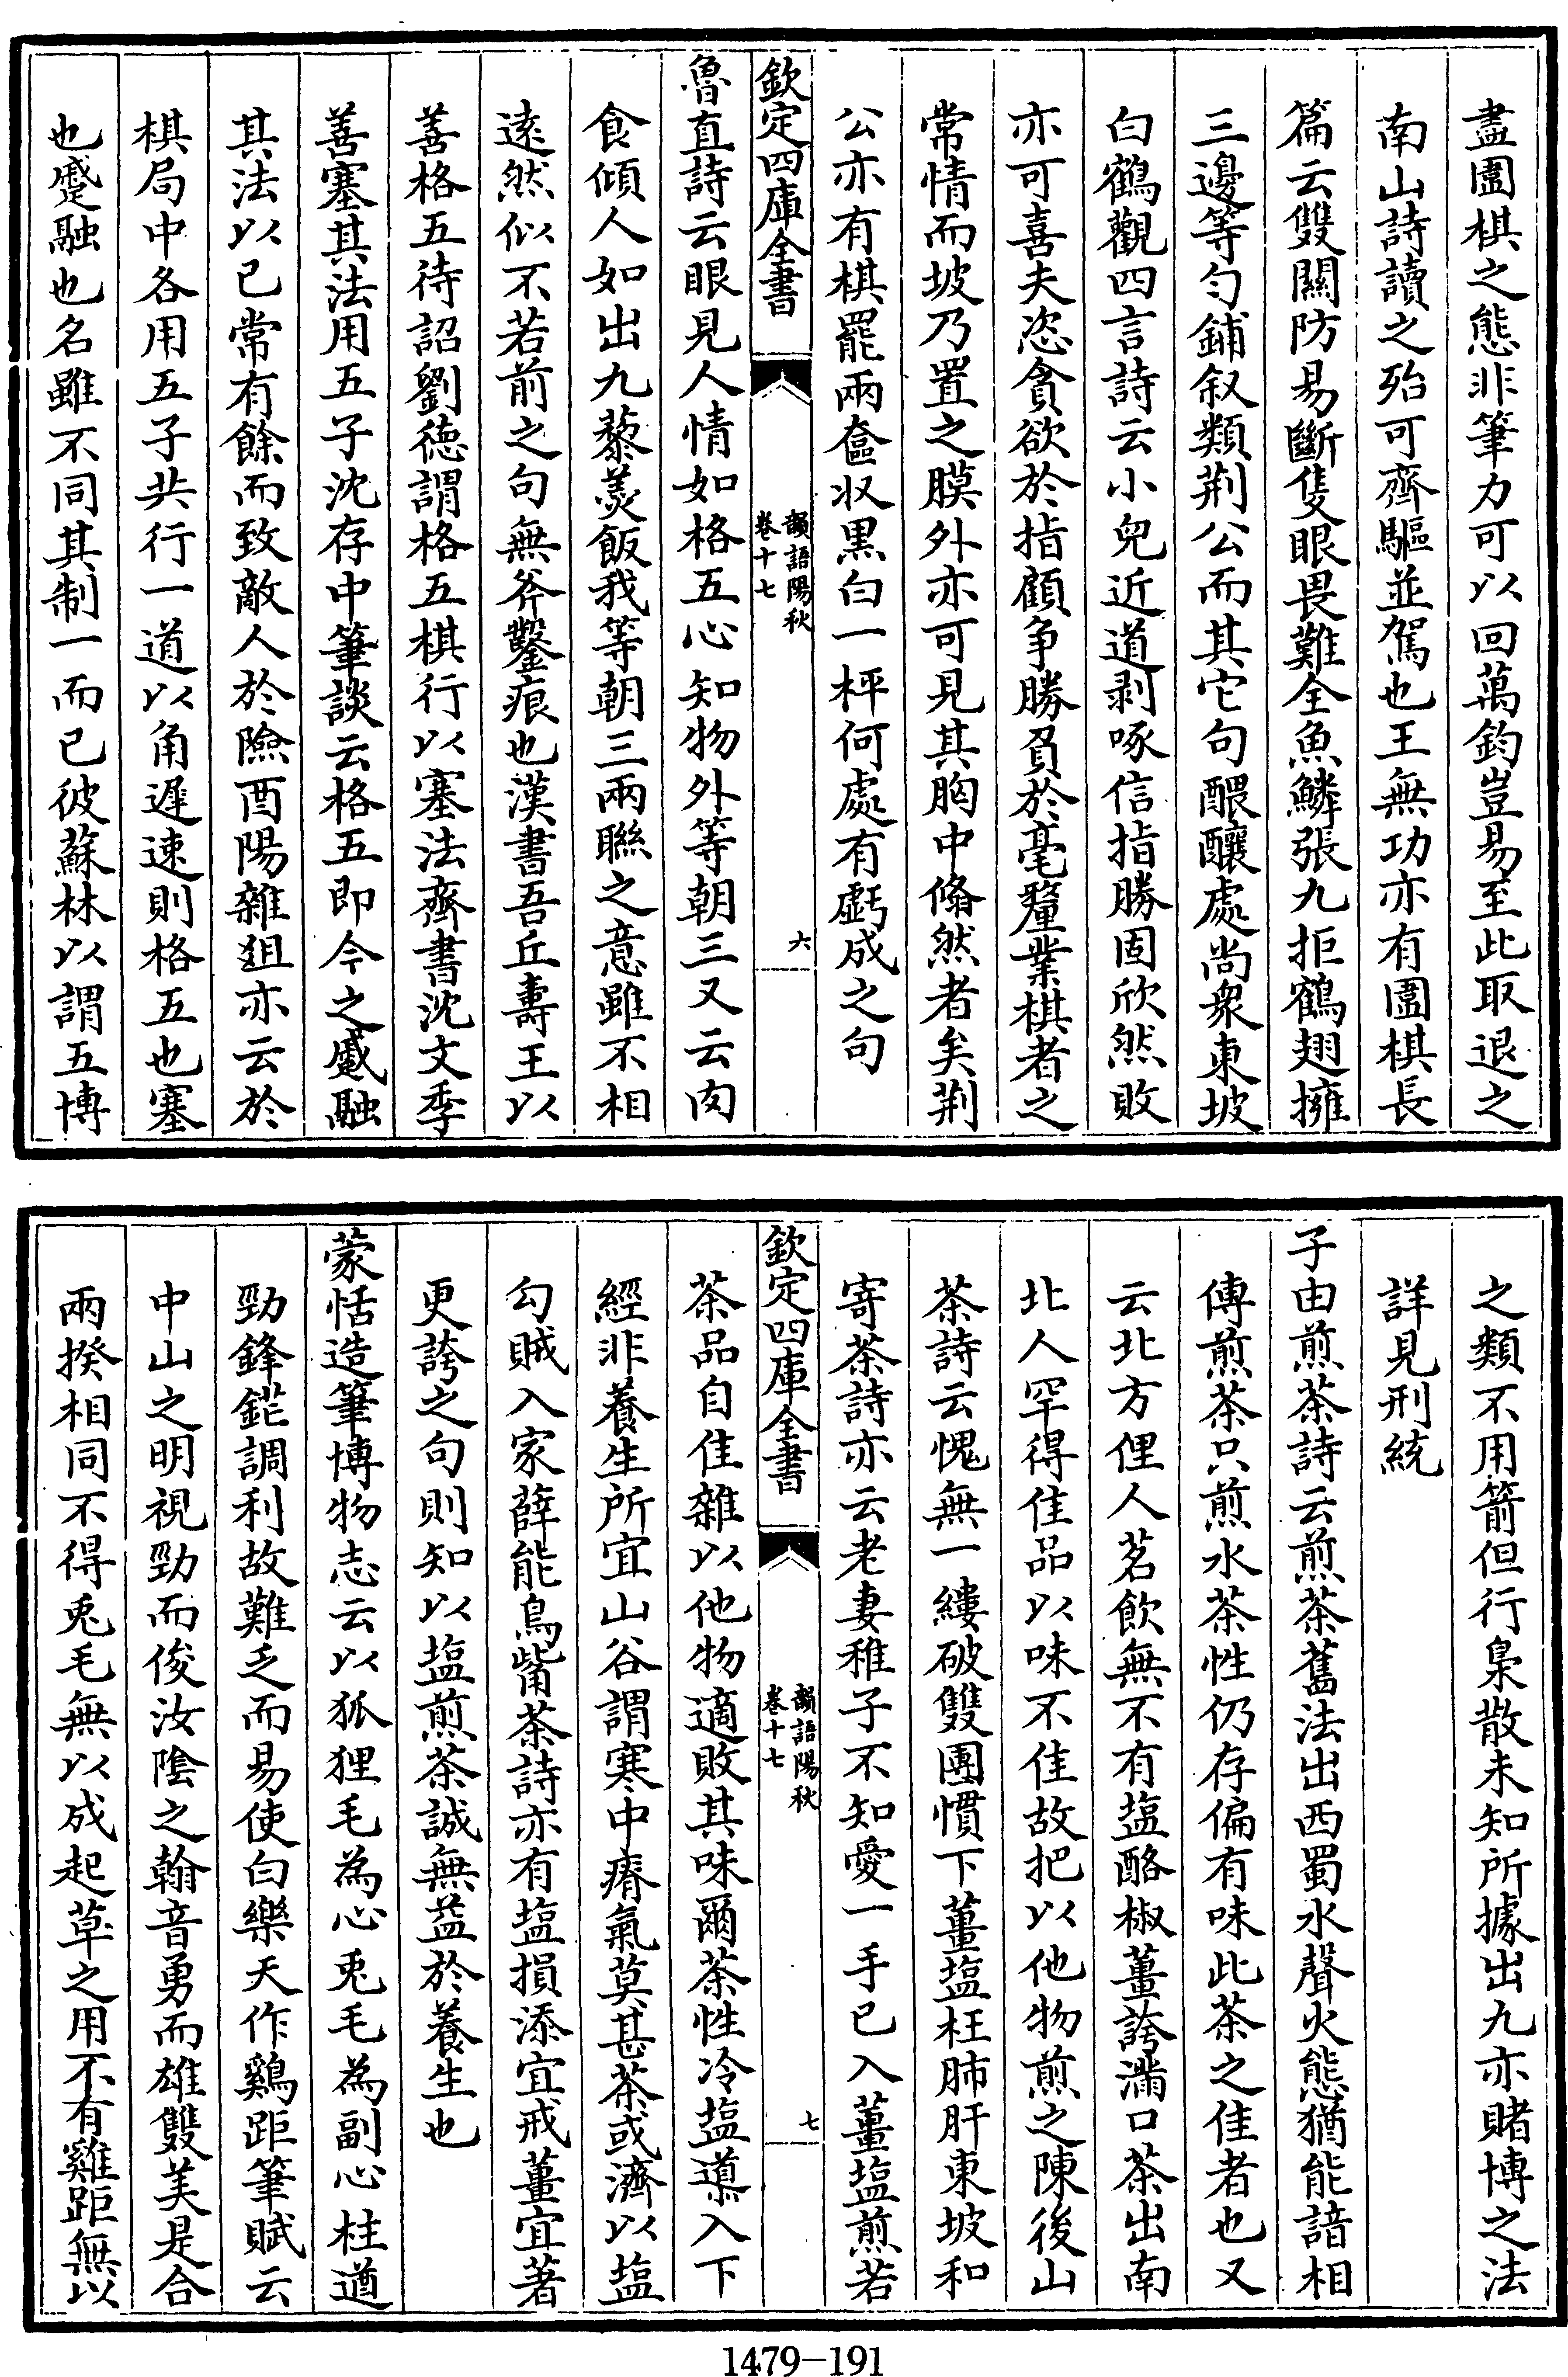 盡圍棋之態非筆力可以回萬鈞豈易至此取退之
南山詩讀之殆可齊驅並駕也王無功亦有圍棋長
篇云雙關防易斷隻眼畏難全魚鱗張九拒鶴翅擁
三邊等勻鋪叙類荆公而其它句醖釀處尚衆東坡
白鶴觀四言詩云小兒近道剥啄信指勝固欣然敗
亦可喜夫恣貪欲於指顧争勝負於毫釐業棋者之
常情而坡乃置之膜外亦可見其胸中翛然者矣荆
公亦有棋罷兩奩收黒白一枰何處有虧成之句
欽定四庫全書
韻語陽秋
卷十七
六
魯直詩云眼見人情如格五心知物外等朝三又云肉
食傾人如出九藜羮飯我等朝三兩聯之意雖不相
逺然似不若前之句無斧鑿痕也漢書吾丘壽王以
善格五待詔劉徳謂格五棋行以塞法齊書沈文季
善塞其法用五子沈存中筆談云格五即今之蹙融
其法以已常有餘而致敵人於險酉陽雜俎亦云於
棋局中各用五子共行一道以角遲速則格五也塞
也蹙融也名雖不同其制一而已彼蘇林以謂五博
之類不用箭但行梟散未知所據出九亦賭博之法
詳見刑統
子由煎茶詩云煎茶舊法出西蜀水聲火態猶能諳相
傳煎茶只煎水茶性仍存偏有味此茶之佳者也又
云北方俚人茗飲無不有塩酪椒薑誇滿口茶出南
北人罕得佳品以味不佳故把以他物煎之陳後山
茶詩云愧無一縷破雙團慣下薑塩枉肺肝東坡和
寄茶詩亦云老妻稚子不知愛一半已入薑塩煎若
欽定四庫全書
韻語陽秋
卷十七
七
茶品自佳雜以他物適敗其味爾茶性冷塩導入下
經非養生所宜山谷謂寒中瘠氣莫甚茶或濟以塩
勾賊入家薛能鳥觜茶詩亦有塩損添宜戒薑宜著
更誇之句則知以塩煎茶誠無益於養生也
蒙恬造筆博物志云以狐狸毛為心兎毛為副心柱遒
勁鋒鋩調利故難乏而易使白樂天作鷄距筆賦云
中山之明視勁而俊汝隂之翰音勇而雄雙美是合
兩揆相同不得兎毛無以成起草之用不有雞距無以
1479-191